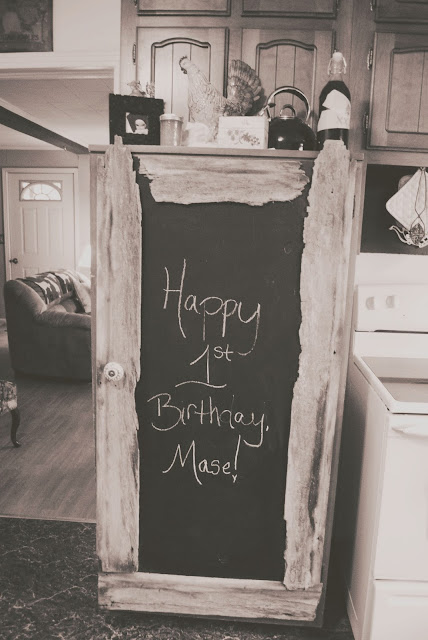 Happy
1st
Birthday,
Mase!